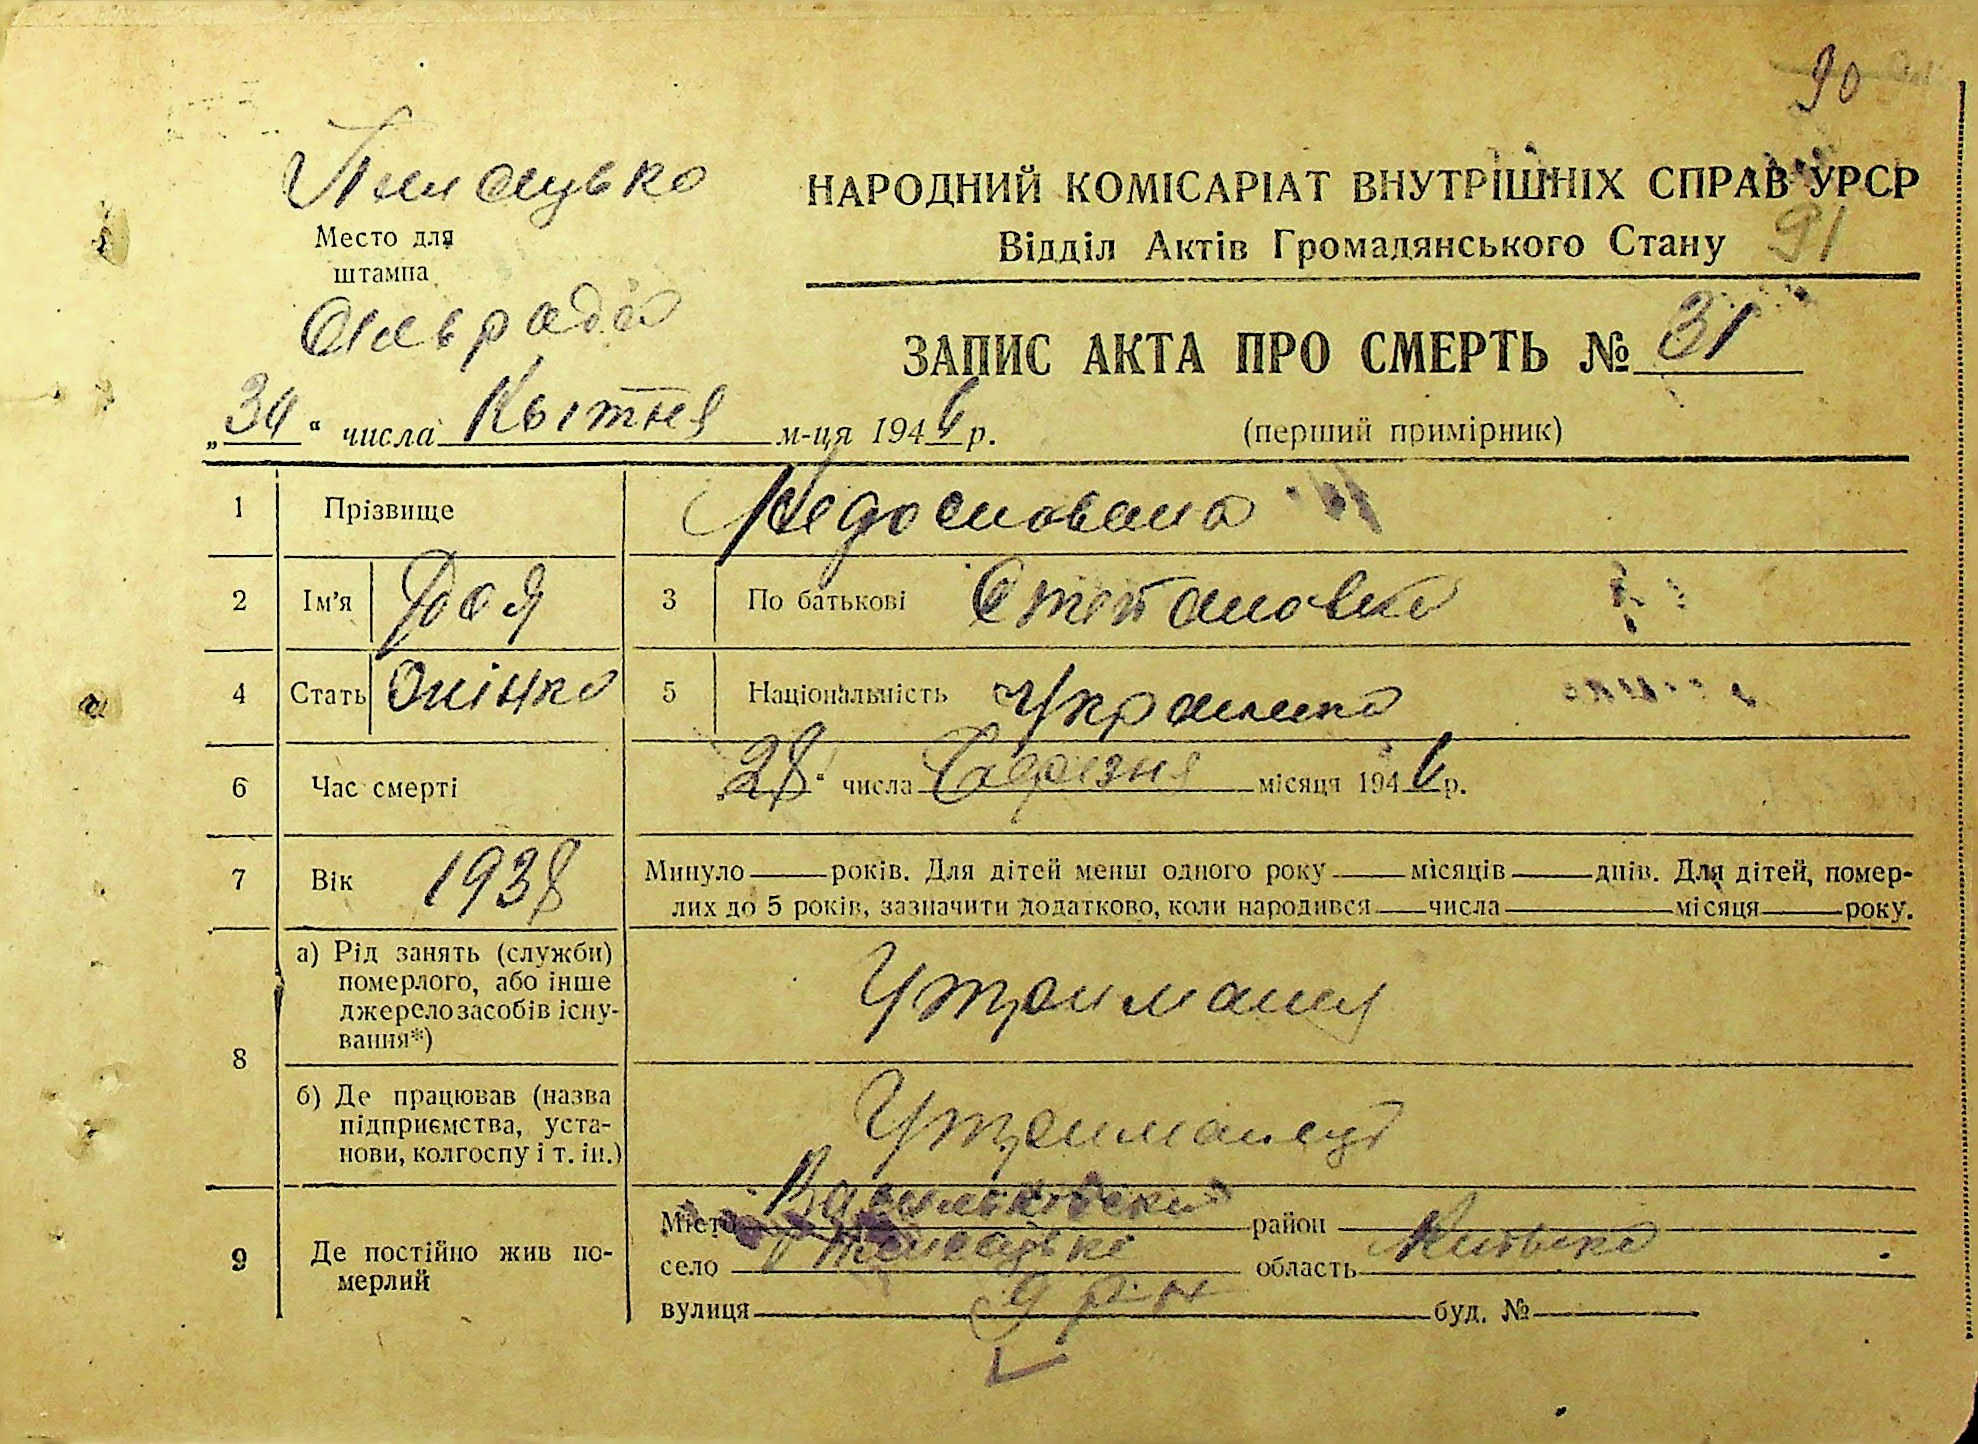 90
НАРОДНИЙ КОМІСАРІАТ ВНУТРІШНІХ СПРАВ УРСР
Місто для
штампа
Відділ Актів Громадянського Стану 91
Сільрада
ЗАПИС АКТА ПРО СМЕРТЬ № 31
„30“ числа Квітня м-ця 1946 р. (перший примірник)
1 Прізвище Недоснована
2 Ім'я 3 По батькові Степановна
4 Стать Жінка 5 Національність Українка
6 Час смерті 28“ числа Березня місяця 1946 р.
7 Вік 1938 Минуло років. Для дітей менш одного року місяців днів. Для дітей, помер-
лих до 5 років, зазначити додатково, коли народився числа місяця року.
8 а) Рід занять (служби)
померлого, або інше
джерело засобів існу-
вання*)
Утриманя
б) Де працював (назва
підприємства, уста-
нови, колгоспу і т. ін.)
Утриманець
9 Де постійно жив по-
мерлий
Місто Васильківский район
село область Київська
вулиця буд. №